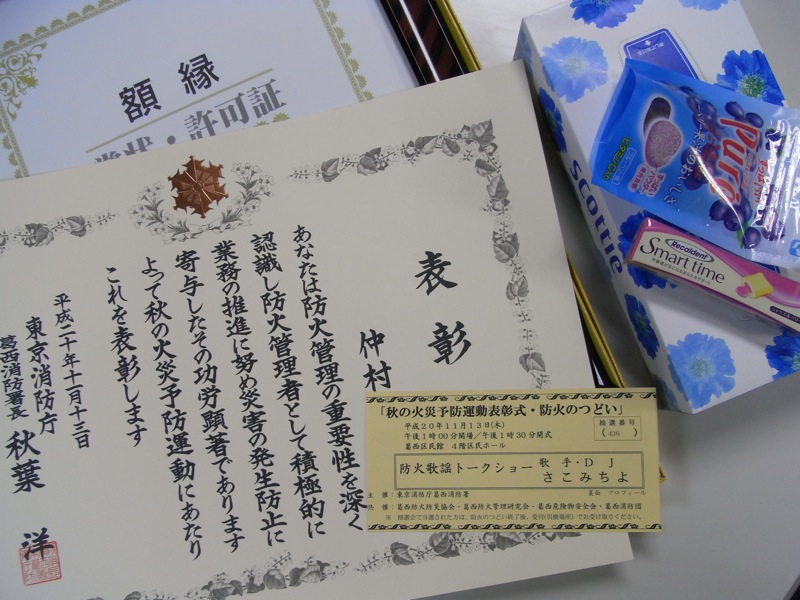 額縁
賞状・許可証
表彰
仲村
あなたは防火管理の重要性を深く
認識し防火管理者として積極的に
業務の推進に努め災害の発生防止に
寄与したその功労顕著であります
よって秋の火災予防運動にあたり
これを表彰します
平成二十年十一月十三日
東京消防庁
葛西消防署長 秋葉 洋
「秋の火災予防運動表彰式・防火のつどい」
平成20年11月13日(木)
午後1時00分開場／午後1時30分開式
葛西区民館 4階区民ホール
抽選番号
(436)
防火歌謡トークショー 歌手・DJ
さこみちよ
主催：東京消防庁葛西消防署
裏面 プロフィール
共催：葛西防火防災協会・葛西防火管理研究会・葛西危険物安全会・葛西消防団
※ 抽選会で当選された方は、防火のつどい終了後、受付(引換場所)でお受け取りください。
scottie
Puré
Recaldent
Smart time